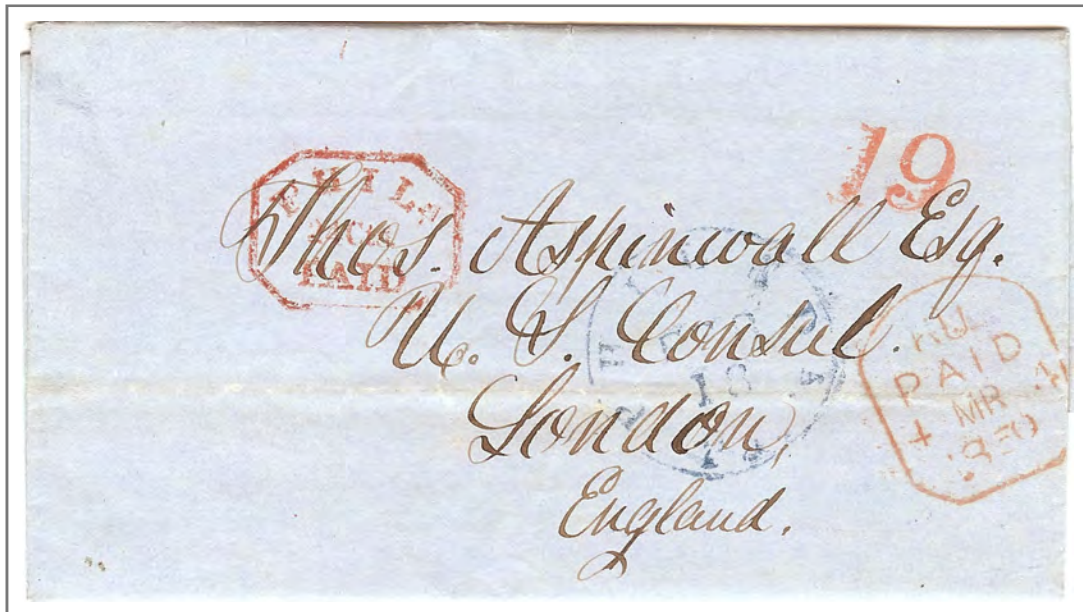 PHILA
PAID
19
Thos. Aspinwall Esq.
U. S. Consul.
London,
England.
18
PAID
MR
1850